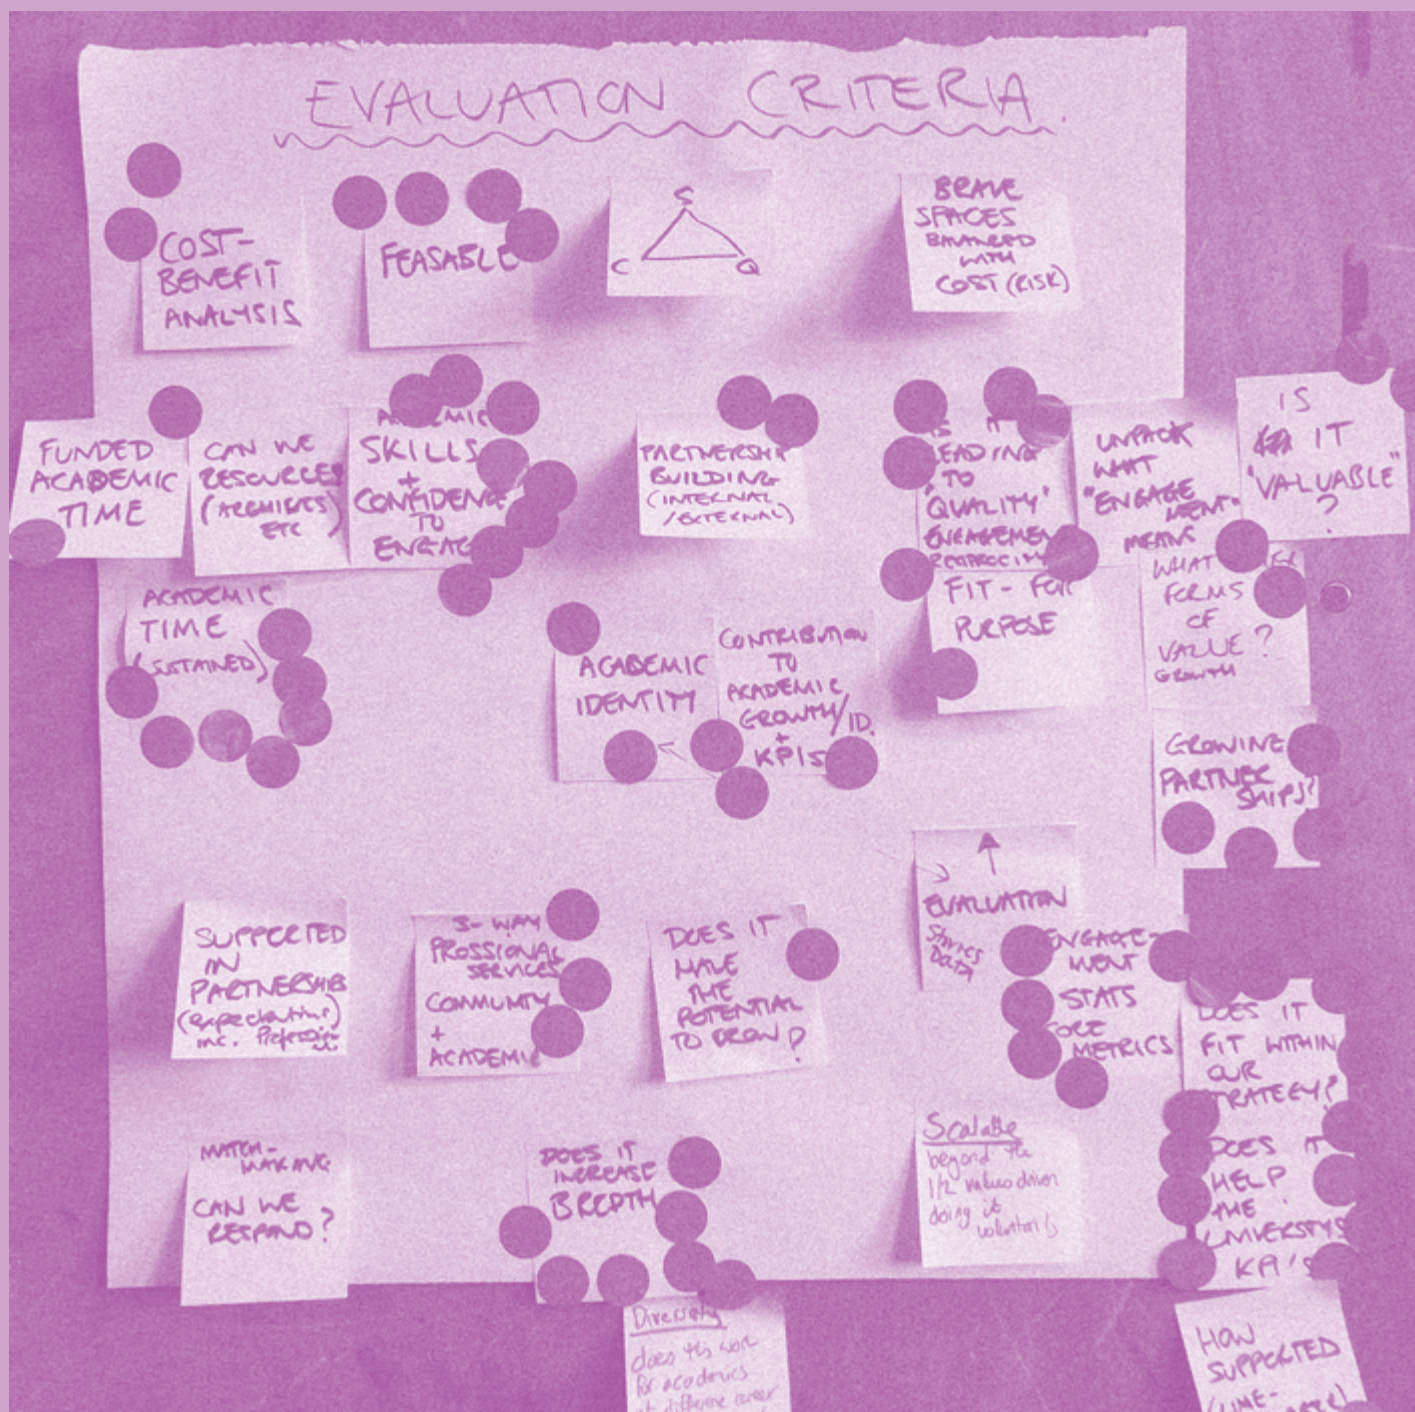 EVALUATION CRITERIA.
COST-
BENEFIT
ANALYSIS
FEASABLE
S
C Q
BRAVE
SPACES
BALANCED
WITH
COST (RISK)
FUNDED
ACADEMIC
TIME
CAN WE
RESOURCES
(ARCHIVES
ETC
SKILLS
+
CONFIDENCE
TO
PARTNERSHIP
BUILDING
(INTERNAL
/EXTERNAL)
IS IT
LEADING
TO
'QUALITY'
ENGAGEMENT
RECIPROCITY
UNPACK
WHAT
"ENGAGE
MENT"
MEANS
IS
IT
"VALUABLE"
?
ACADEMIC
TIME
(SUSTAINED)
ACADEMIC
IDENTITY
CONTRIBUTION
TO
ACADEMIC
GROWTH/ID.
+
KPIS
FIT - FOR
PURPOSE
WHAT
FORMS
OF
VALUE?
GROWTH
GROWING
PARTNER
SHIPS?
SUPPORTED
IN
PARTNERSHIP
(expectations)
inc.
3-WAY
PROSSIONAL
SERVICES
COMMUNITY
+
ACADEMIC
DOES IT
HAVE
THE
POTENTIAL
TO GROW?
EVALUATION
DATA
ENGAGE-
MENT
STATS
METRICS
DOES IT
FIT WITHIN
OUR
STRATEGY?
MATCH-
MAKING
CAN WE
RESPOND?
DOES IT
INCREASE
BREDTH
Scalable
beyond the
1/2 values driven
doing it
voluntarily
DOES IT
HELP
THE
UNIVERSTYS
KPI'S
Diversity
does this work
for academics
at different career
HOW
SUPPORTED
(TIME-